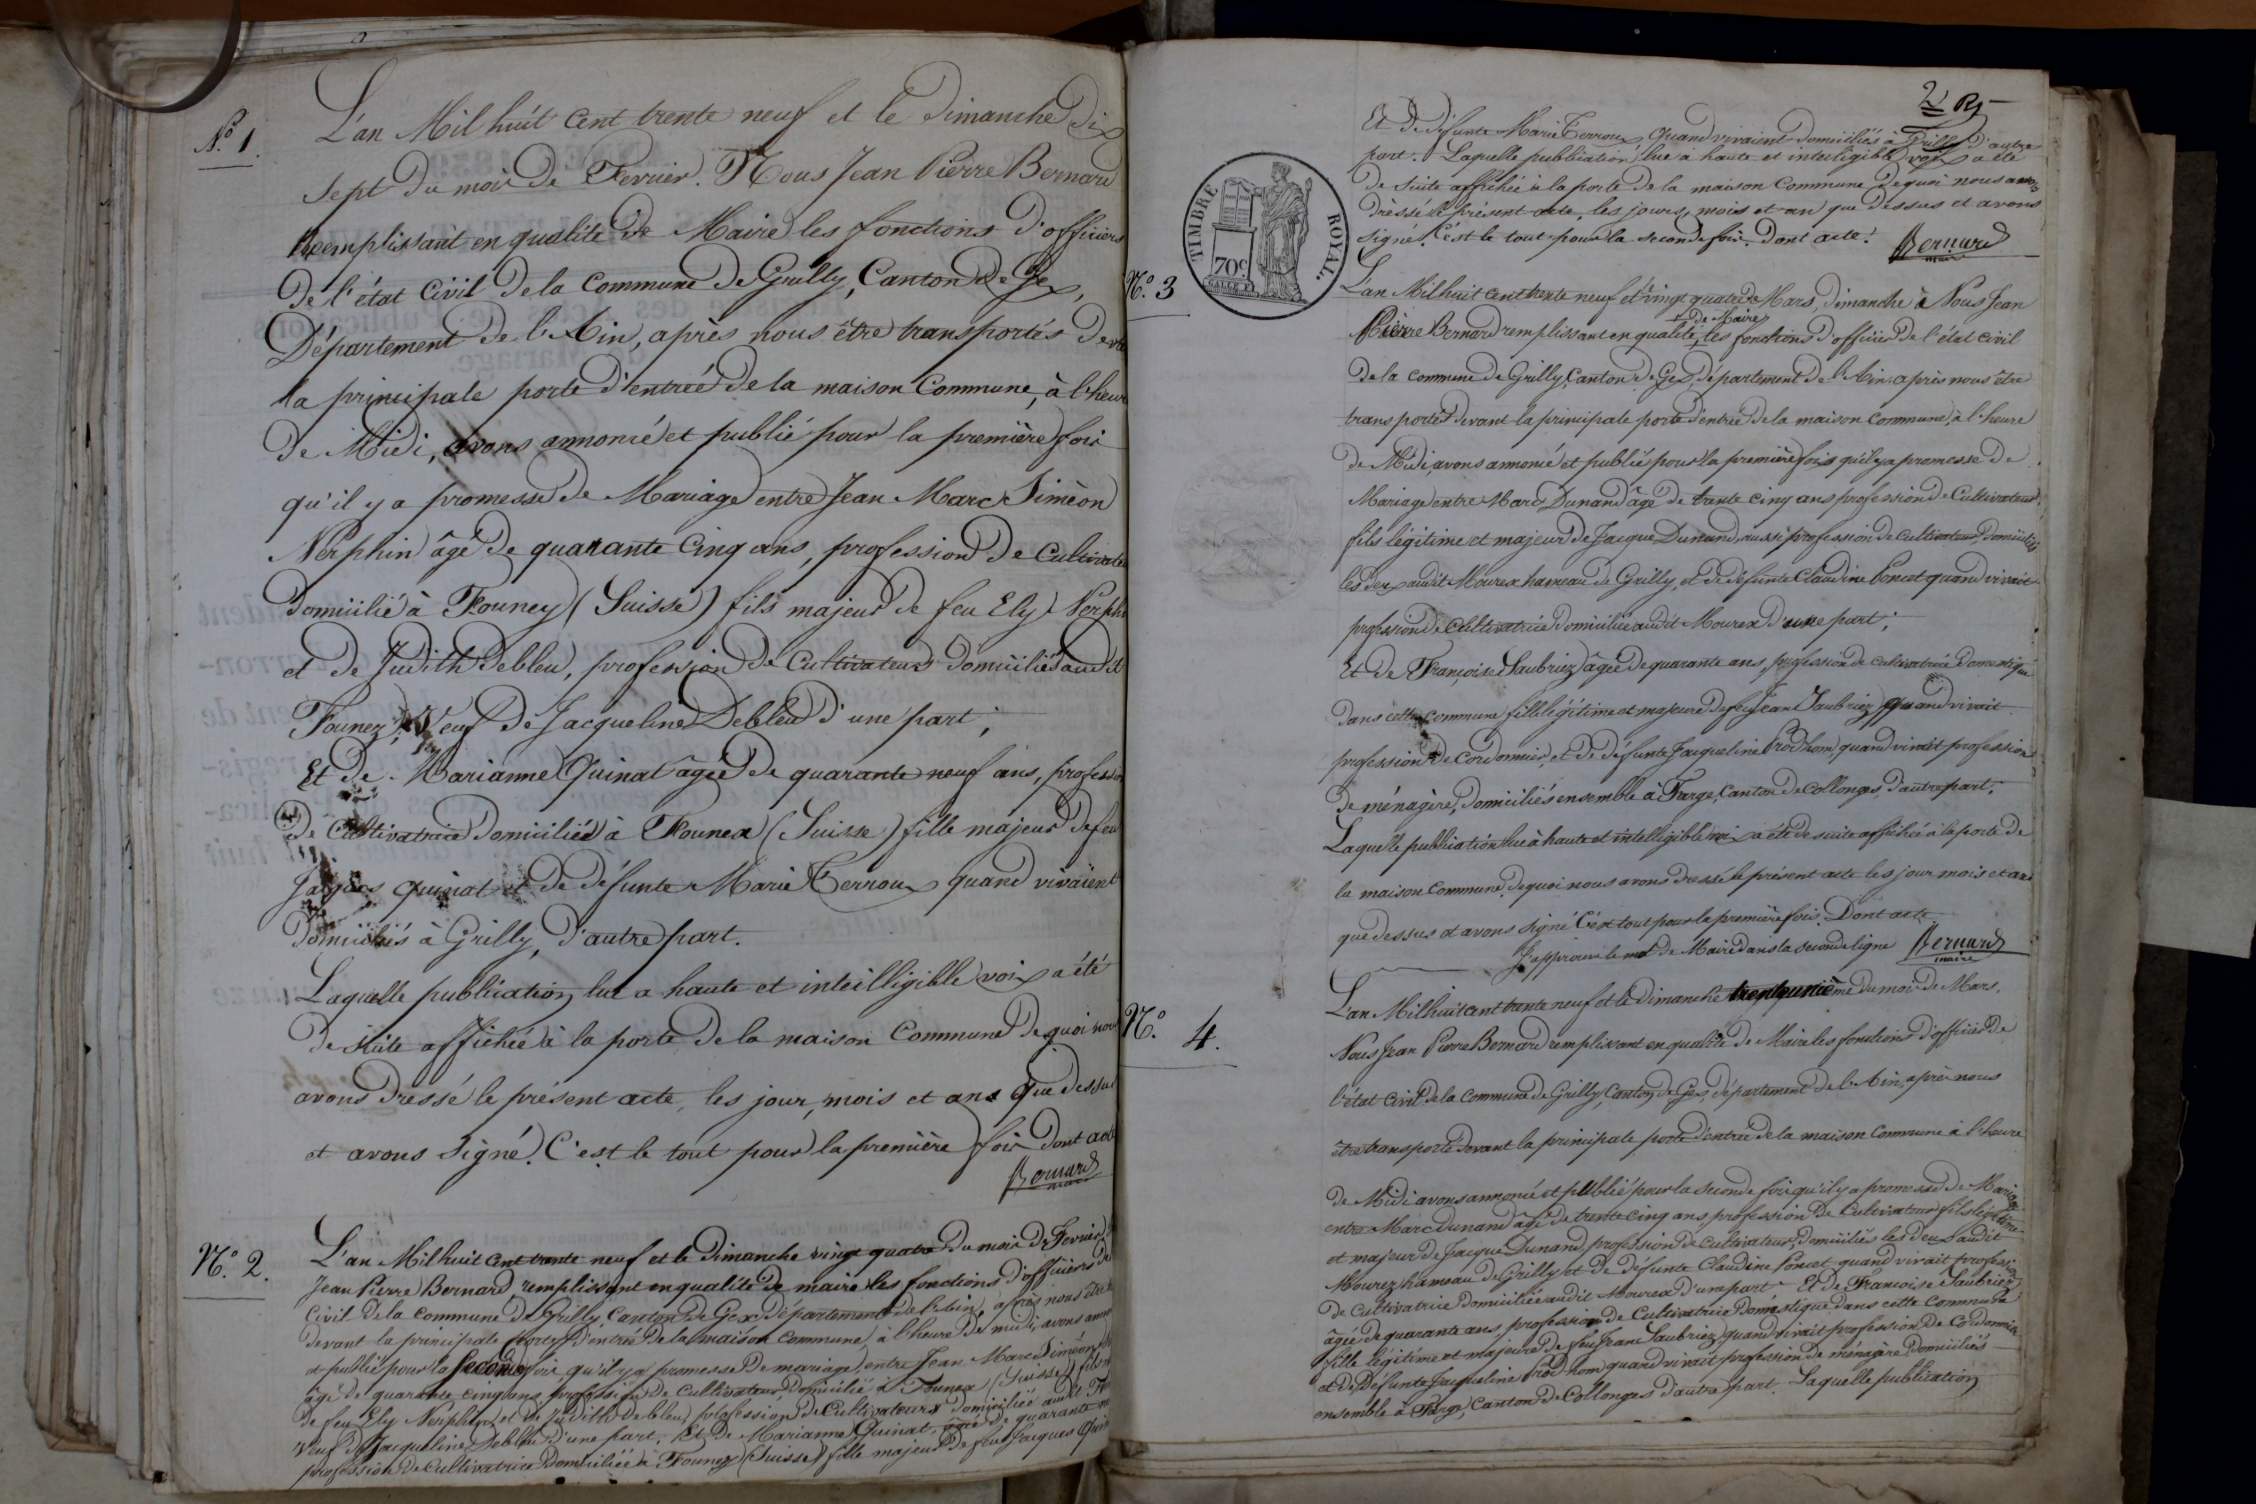 N.º 1.
L'an Mil huit Cent trente neuf et le Dimanche Dix
sept du mois de Fevrier. Nous Jean Pierre Bernard
Remplissant en qualité de Maire les fonctions d'officiers
de l'état Civil de la Commune de Grilly, Canton de Gex,
Département de l'Ain, après nous être transportés dev
la principale porte d'entrée de la maison Commune, à l'heure
de Midi, avons annoncé et publié pour la première fois
qu'il y a promesse de Mariage entre Jean Marc Siméon
Nerphin âgé de quarante Cinq ans, profession de Cultivate
domicilié à Founex (Suisse) fils majeur de feu Ely Nerph
et de Judith Debleu, profession de Cultivateurs domiciliés audit
Founex, Veuf de Jacqueline Debleu d'une part;
Et de Marianne Quinat âgée de quarante neuf ans, professio
de Cultivatrice domiciliée à Founex (Suisse) fille majeur de feu
Jacques Quinat et de défunte Marie Terroux quand vivaient
domiciliés à Grilly, d'autre part.
Laquelle publication lue a haute et inteilligible voix a été
de suite affichée à la porte de la maison Commune de quoi nous
avons dressé le présent acte, les jour, mois et ans que dessus
et avons signé. C'est le tout pour la première fois dont acte
Bernard
maire
N.º 2.
L'an Mil huit Cent trente neuf et le Dimanche vingt quatre du mois de Fevrier
Jean Pierre Bernard, remplissant en qualité de maire les fonctions d'officiers de
Civil de la Commune de Grilly, Canton de Gex département de l'Ain, après nous être
devant la principale porte d'entrée de la maison Commune, à l'heure de midi, avons annon
et publié pour la seconde fois qu'il y a promesse de mariage entre Jean Marc Siméon
âgé de quarante cinq ans profession de Cultivateur, domicilié à Founex (Suisse) fils
de feu Ely Nerphin et de Judith Debleu profession de Cultivateurs domiciliés audit
Veuf de Jacqueline Debleu d'une part. Et de Marianne Quinat, âgée de quarante
profession de Cultivatrice domiciliée à Founex (Suisse) fille majeur de feu Jacques Quin
2
Et de défunte Marie Terroux Quand vivaient domiciliés à Grilly d'autre
part. Laquelle publication lue a haute et inteiligible voix a été
de suite affichée à la porte de la maison Commune de quoi nous avons
dressé le présent acte, les jours, mois et an que dessus et avons
signé. C'est le tout pour la seconde fois. Dont acte.
Bernard
maire
TIMBRE ROYAL.
70c.
N.º 3
L'an Mil huit Cent trente neuf et vingt quatre de Mars, Dimanche à Nous Jean
de Maire
Pierre Bernard remplissant en qualité, les fonctions d'officier de l'état Civil
de la Commune de Grilly, Canton de Gex, département de l'Ain, après nous être
transporté devant la principale porte d'entrée de la maison Commune, à l'heure
de Midi, avons annoncé et publié pour la première fois qu'il y a promesse de
Mariage entre Marc Dunand âgé de trente cinq ans profession de Cultivateur,
fils légitime et majeur de Jacque Dunand, aussi profession de cultivateur, domiciliés
les deux audit Mourex hameau de Grilly, et de défunte Claudine Poncet quand vivait
profession de Cultivatrice domiciliée audit Mourex d'une part;
Et de Françoise Saubriez âgée de quarante ans, profession de cultivatrice Domestique
dans cette commune fille légitime et majeure de feu Jean Saubriez quand vivait
profession de Cordonnier, et de défunte Jacqueline Prodhom, quand vivait profession
de ménagère, domiciliés ensemble à Farge, Canton de Collonges d'autre part.
Laquelle publication lue à haute et intelligible voix a été de suite affichée à la porte de
la maison Commune, de quoi nous avons dressé le présent acte les jour mois et an
que dessus et avons signé C'est tout pour la première fois. Dont acte.
J'approuve le mot de Maire dans la seconde ligne
Bernard
maire
N.º 4.
L'an Mil huit cent trente neuf et le Dimanche trenteunième du mois de Mars.
Nous Jean Pierre Bernard remplissant en qualité de Maire les fonctions d'officier de
l'état Civil de la Commune de Grilly, Canton de Gex, département de l'Ain, après nous
être transporté devant la principale porte d'entrée de la maison Commune à l'heure
de Midi avons annoncé et publié pour la seconde fois qu'il y a promesse de Mariage
entre Marc Dunand âgé de trente cinq ans profession de Cultivateur fils légitime
et majeur de Jacque Dunand, profession de cultivateur, domiciliés les deux audit
Mourex hameau de Grilly et de défunte Claudine Poncet quand vivait profession
de Cultivatrice domiciliée audit Mourex d'une part. Et de Françoise Saubriez
âgée de quarante ans, profession de Cultivatrice Domestique dans cette Commune
fille légitime et majeure de feu Jean Saubriez quand vivait profession de Cordonnier
et de défunte Jacqueline Prodhom, quand vivait profession de ménagère domiciliés
ensemble à Farge, Canton de Collonges d'autre part. Laquelle publication